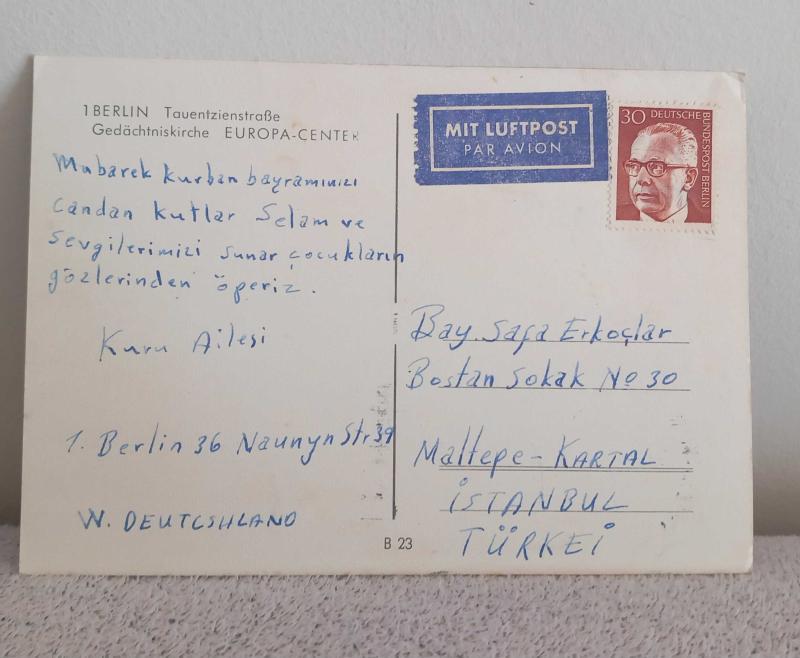 1 BERLIN Tauentzienstraße
Gedächtniskirche EUROPA-CENTER
Mubarek kurban bayramınızı
candan kutlar Selam ve
sevgilerimizi sunar çocukların
gözlerinden öperiz.
Kuru Ailesi
1. Berlin 36 Naunyn Str 39
W. DEUTCSHLAND
B 23
MIT LUFTPOST
PAR AVION
30 DEUTSCHE
BUNDESPOST BERLIN
Bay. Safa Erkoçlar
Bostan Sokak No 30
Maltepe - KARTAL
İSTANBUL
TÜRKEİ